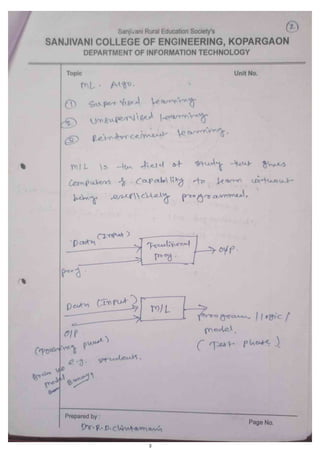 2
Sanjivani Rural Education Society's
SANJIVANI COLLEGE OF ENGINEERING, KOPARGAON
DEPARTMENT OF INFORMATION TECHNOLOGY
Topic Unit No.
ML. Algo.
① Supervised learning
② Unsupervised learning
③ Reinforcement learning.
M/L is the field of study that gives
computers & capability to learn without
being explicitely programmed.
Data (Input)
Traditional prog. → O/P
prog
Data (Input)
M/L
program / logic /
model.
O/P
(Test phase)
e.g. students.
model
Prepared by :
Page No.